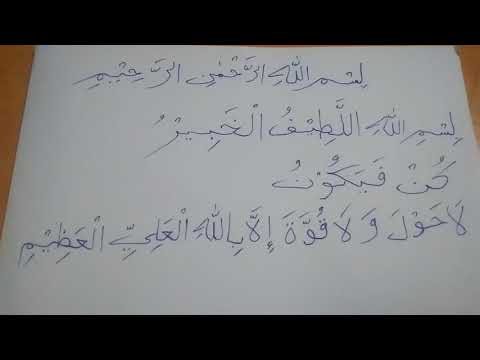 بِسْمِ اللهِ الرَّحْمٰنِ الرَّحِيْمِ
بِسْمِ اللهِ اللَّطِيْفُ الْخَبِيْرُ
كُنْ فَيَكُوْنُ
لَا حَوْلَ وَ لَا قُوَّةَ إِلَّا بِاللهِ الْعَلِيِّ الْعَظِيْمِ